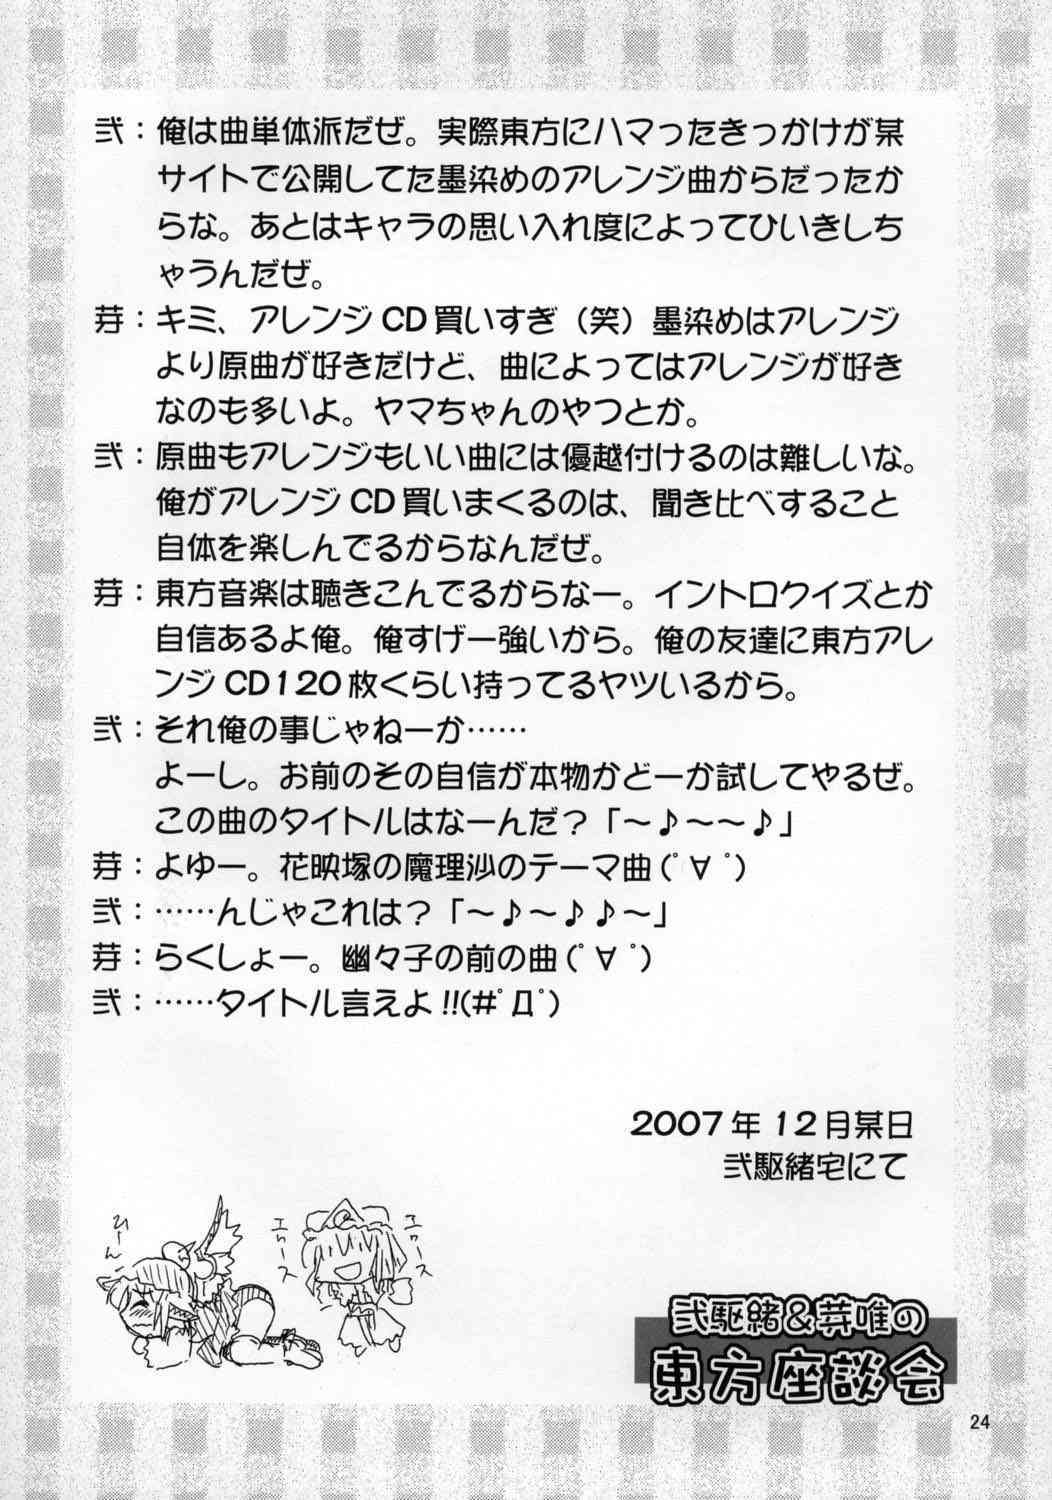 弐：俺は曲単体派だぜ。実際東方にハマったきっかけが某
サイトで公開してた墨染めのアレンジ曲からだったか
らな。あとはキャラの思い入れ度によってひいきしち
ゃうんだぜ。
芽：キミ、アレンジCD買いすぎ（笑）墨染めはアレンジ
より原曲が好きだけど、曲によってはアレンジが好き
なのも多いよ。ヤマちゃんのやつとか。
弐：原曲もアレンジもいい曲には優越付けるのは難しいな。
俺がアレンジCD買いまくるのは、聞き比べすること
自体を楽しんでるからなんだぜ。
芽：東方音楽は聴きこんでるからなー。イントロクイズとか
自信あるよ俺。俺すげー強いから。俺の友達に東方アレ
ンジCD120枚くらい持ってるヤツいるから。
弐：それ俺の事じゃねーか……
よーし。お前のその自信が本物かどーか試してやるぜ。
この曲のタイトルはなーんだ？「～♪～～♪」
芽：よゆー。花映塚の魔理沙のテーマ曲(ﾟ∀ﾟ)
弐：……んじゃこれは？「～♪～♪♪～」
芽：らくしょー。幽々子の前の曲(ﾟ∀ﾟ)
弐：……タイトル言えよ!!(#ﾟДﾟ)
2007年12月某日
弐駆緒宅にて
ひーん
エゥース
エゥース
弐駆緒&芽唯の
東方座談会
24